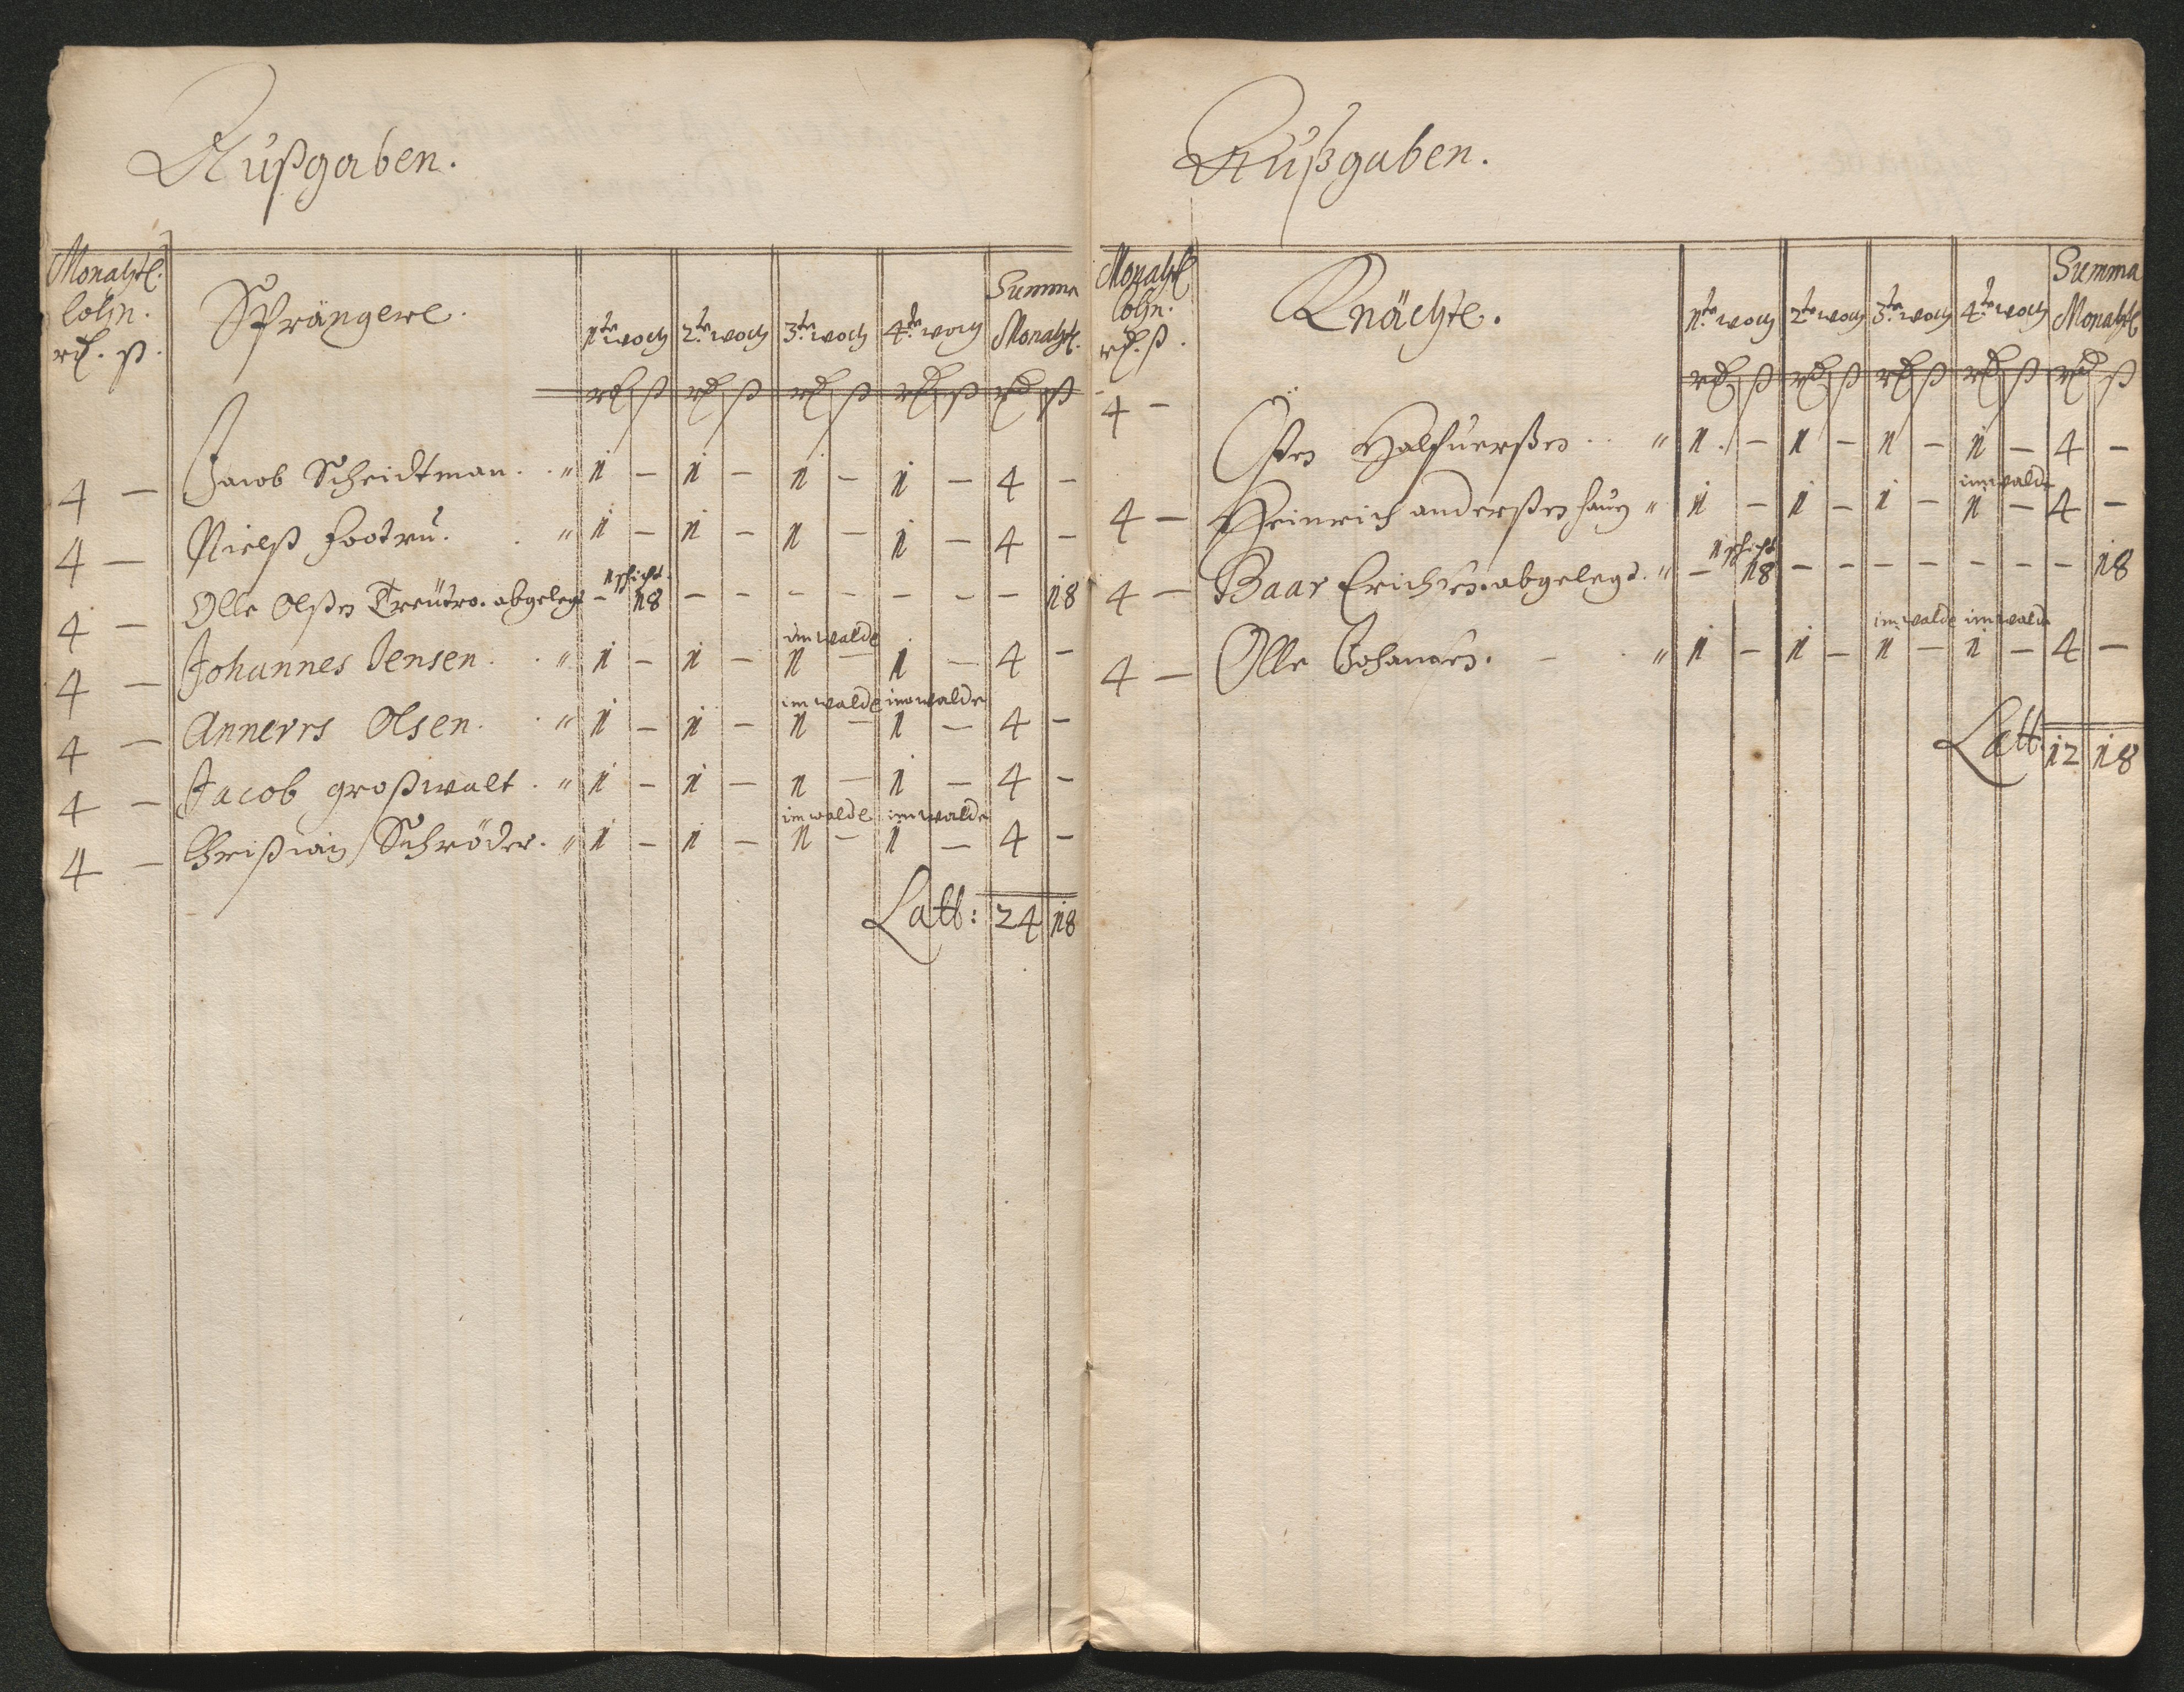 Außgaben.
Monahtl. lohn. rd. ß.
Sprängere.
1te woch 2te woch 3te woch 4te woch Summa Monahtl.
rd ß rd ß rd ß rd ß rd ß
4 — Jacob Scheidtman. . " 1 — 1 — 1 — 1 — 4 —
4 — Nielß Footru. . " 1 — 1 — 1 — 1 — 4 —
1 schicht.
4 — Olle Olßen Treütro. abgelegt — 18 — — — — — — — 18
im walde
4 — Johannes Jensen. . " 1 — 1 — 1 — 1 — 4 —
im walde im walde
4 — Annerrs Olsen. . " 1 — 1 — 1 — 1 — 4 —
4 — Jacob großwalt. " 1 — 1 — 1 — 1 — 4 —
im walde im walde
4 — Christian Schröder. " 1 — 1 — 1 — 1 — 4 —
Latt: 24 18
Außgaben.
Monahtl lohn. rd. ß.
Knächte.
1te woch 2te woch 3te woch 4te woch Summa Monahtl
rd ß rd ß rd ß rd ß rd ß
4 — Osten Halfuerßen . . " 1 — 1 — 1 — 1 — 4 —
im walde
4 — Heinrich anderßen haug " 1 — 1 — 1 — 1 — 4 —
1 schicht
4 — Baar Erichsen. abgelegt. " — 18 — — — — — — — 18
im walde im walde
4 — Olle Johansen. — . " 1 — 1 — 1 — 1 — 4 —
Latt: 12 18